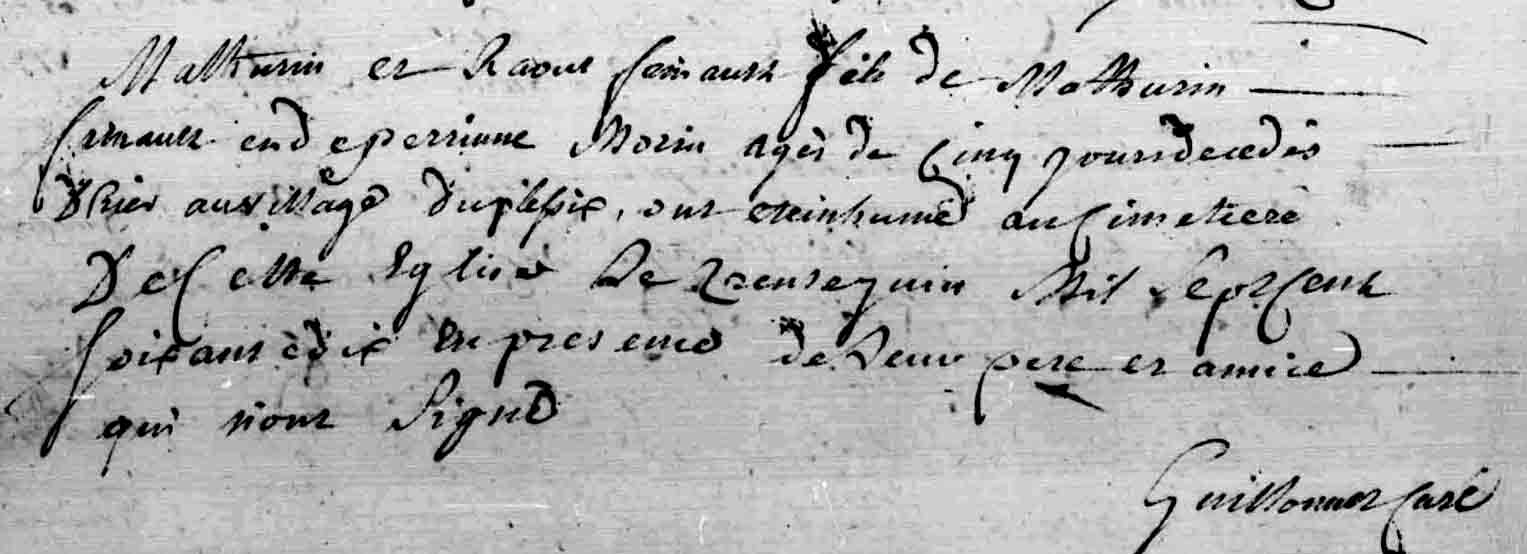 Mathurin et Raoul ferrault fils de Mathurin
ferrault et de perrinne Morin agés de Cinq jours decedés
D'hier au village du plessix, ont eté inhumé au Cimetiere
De Cette Eglise Le trente juin Mil Sept Cent
Soixante dix En presence de Leur pere et amice
qui n'ont Signé
Guillonnet Curé